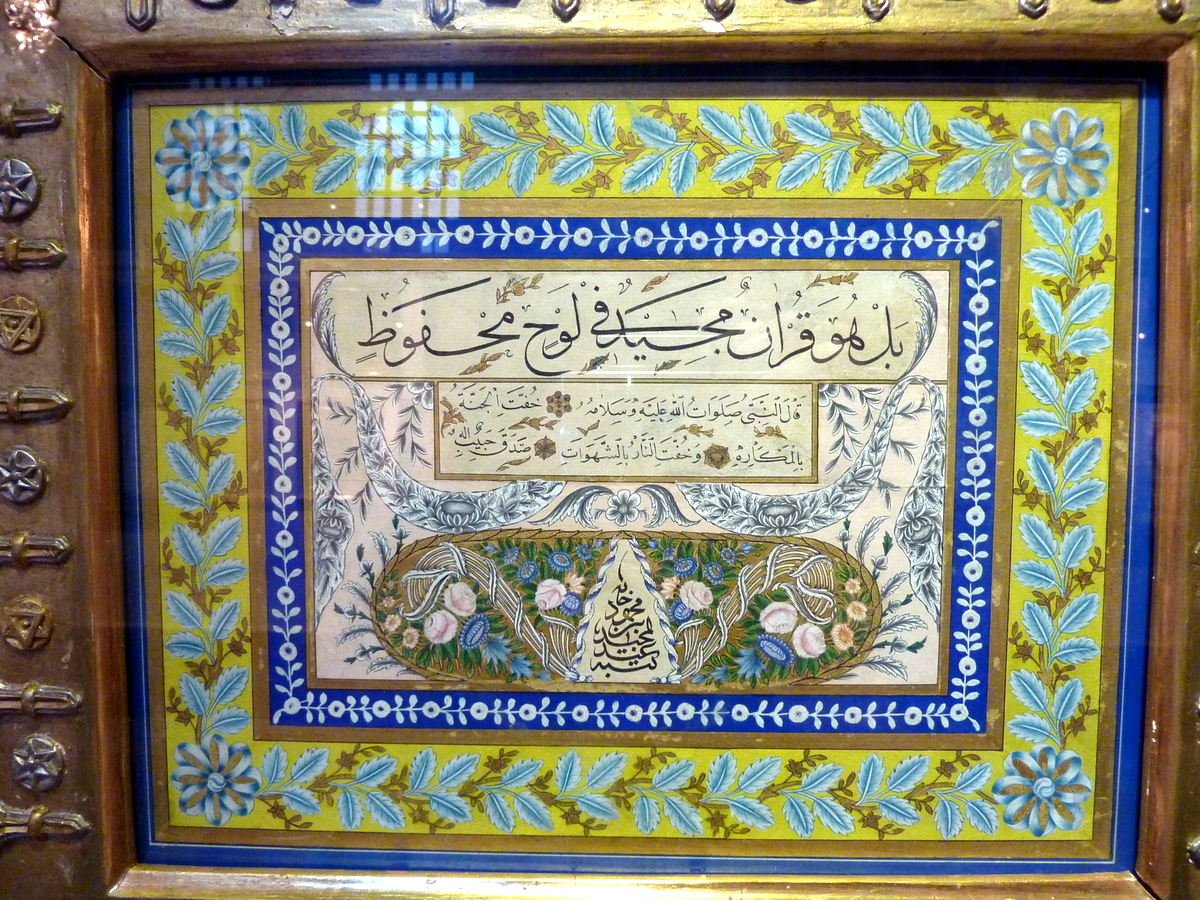 بَلْ هُوَ قُرْاٰنٌ مَجيدٌ فِي لَوْحٍ مَحْفُوظٍ
قَالَ النَّبِيُّ صَلَوَاتُ اللّٰهِ عَلَيْهِ وَسَلَامُهُ حُفَّتِ الْجَنَّةُ
بِالْمَكَارِهِ وَحُفَّتِ النَّارُ بِالشَّهَوَاتِ صَدَقَ حَبِيبُ اللّٰهِ
كتبه عبد المجيد بن محمود خان